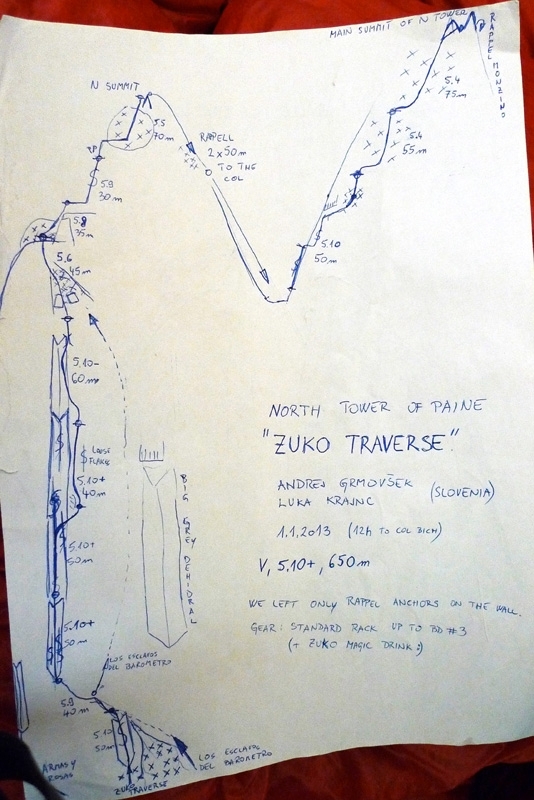 MAIN SUMMIT OF N TOWER
RAPPEL MONZINO
5.4
75m
N SUMMIT
5.5
70m
RAPELL
2x50m
TO THE
COL
5.4
55m
5.9
30m
5.8
35m
5.10
50m
5.6
45m
5.10-
60m
LOOSE
FLAKE
5.10+
40m
BIG GREY DEHIDRAL
5.10+
50m
5.10+
50m
NORTH TOWER OF PAINE
"ZUKO TRAVERSE"
ANDREJ GRMOVŠEK
LUKA KRAJNC
(SLOVENIA)
1.1.2013 (12h TO COL BICH)
V, 5.10+, 650m
WE LEFT ONLY RAPPEL ANCHORS ON THE WALL.
GEAR: STANDARD RACK UP TO BD #3
(+ ZUKO MAGIC DRINK:)
LOS ESCLAVOS
DEL BAROMETRO
5.9
40m
5.10
50m
LOS ESCLAVOS
DEL BAROMETRO
ARMAS Y
ROSAS
ZUKO
TRAVERSE